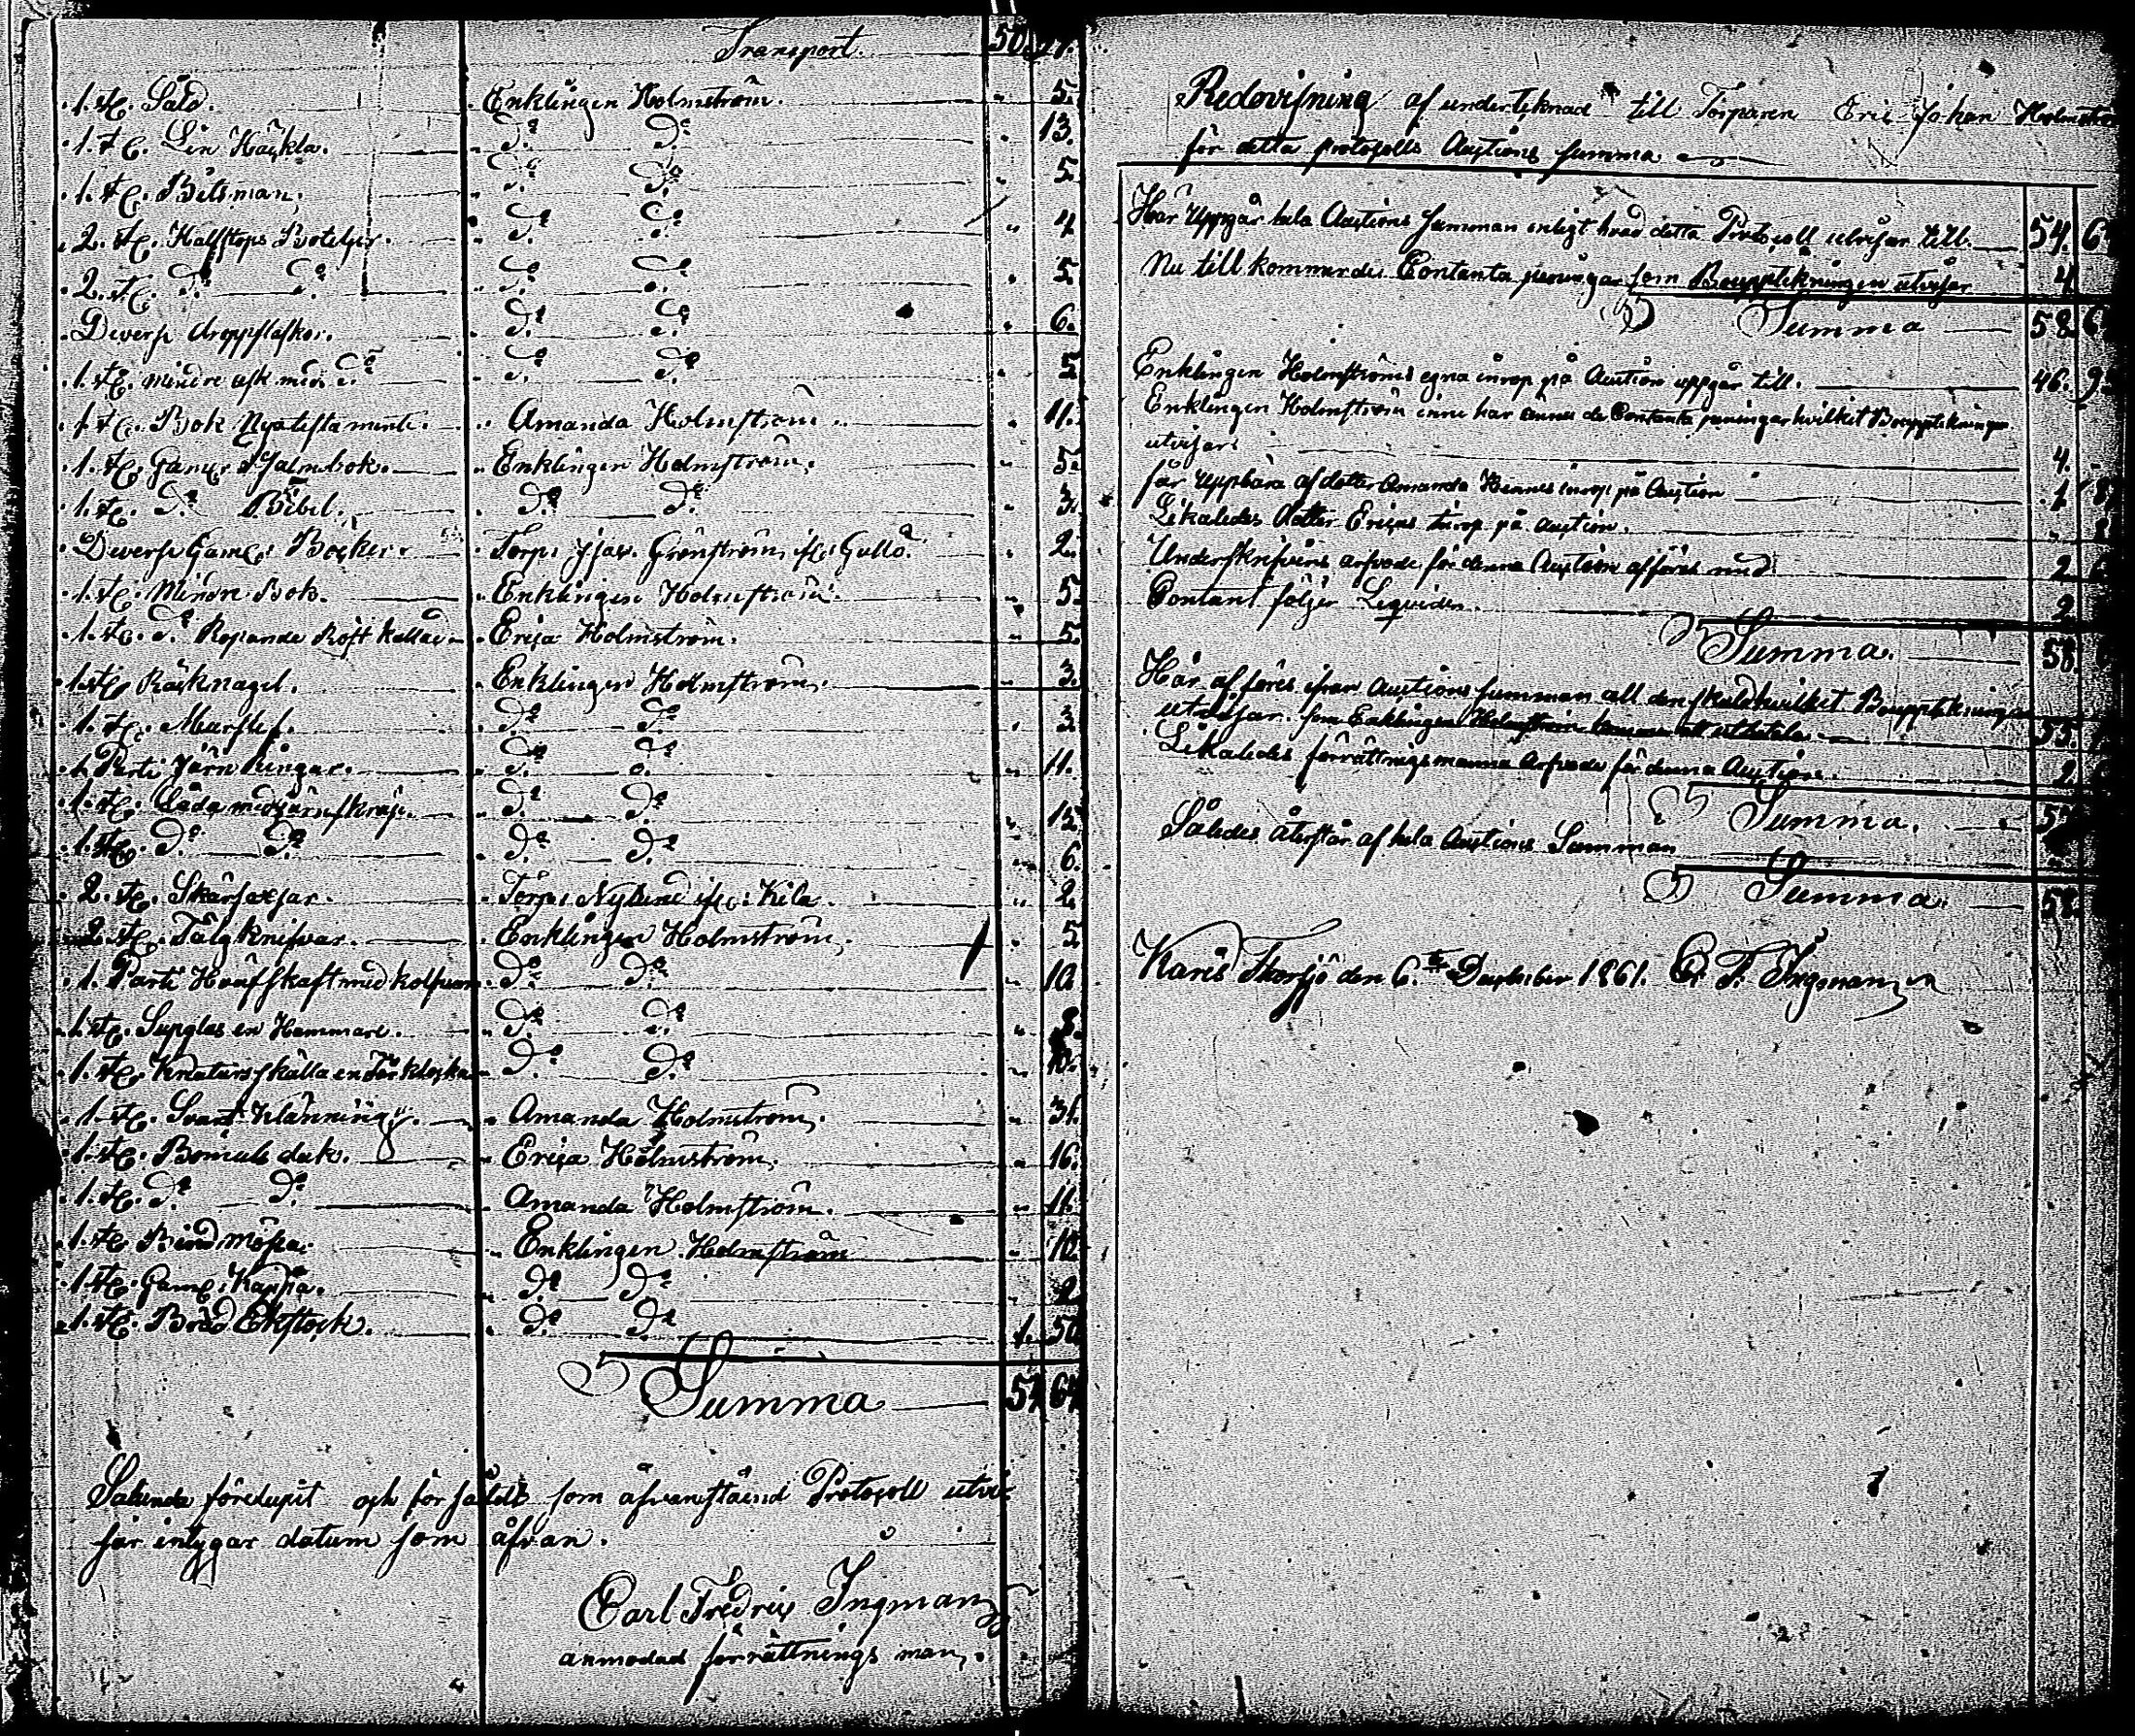 Transport. 50. 27.
1. st. Såld. Enklingen Holmström. " 5.
1. st. Lin Häckla. D:o D:o " 13.
1. st. Bitsman. D:o D:o " 5.
2. st. Halfstops Boteljer. D:o D:o " 4
2. st. D:o D:o D:o D:o " 5.
Diverse droppflaskor. D:o D:o " 6.
1. st. mindre ask med D:o D:o D:o " 5
1 st. Bok Nyatestamente. Amanda Holmström. " 11.
1. st. Gam: Psalmbok. Enklingen Holmström. " 5.
1. st. D:o Bibel. D:o D:o " 3.
Diverse Gaml: Böcker. Torp: Grönström Gullö. " 2.
1. st. Mindre Bok. Enklingen Holmström. " 5
1. st. D:o Ropande Röst kallad Erica Holmström. " 5.
1. st. Enklingen Holmström. " 3.
1. st. D:o D:o " 3
1 Parti Järn Ringar. D:o D:o " 11.
1. st. Låda med järnskrap. D:o D:o " 12
1. st. D:o D:o D:o D:o " 6.
2. st. Skärsaxar. Torp: Nylund Kila. " 2
2. st. Tälgknifvar. Enklingen Holmström. " 5
1. Parti D:o D:o " 10.
1. st. Supglas en Hammare. D:o D:o " 8
1. st. Kreaturs skälla en D:o D:o " 10.
1. st. Svart Klänning. Amanda Holmström. " 31.
1. st. Bomuls duk. Erica Holmström. " 16.
1. st. D:o D:o Amanda Holmström. " 11.
1. st. Bindmössa. Enklingen Holmström " 10
1. st. Gaml: Kappa. D:o D:o " 2
1. st. Bräd Ekstock. D:o D:o 1. 50
Summa 54 64
Salunda förelupit och försåldt som ofvanstående Protocoll utvi-
sar intygar datum som åfvan.
Carl Fredric Ingman
anmodad förrättnings man.
Redovisning af undertecknad till Torparen Eric Johan
för detta protocolls Auctions summa
Här Uppgår hela Auctions summan enligt hvad detta Protocoll utvisar till. 54.
Nu till kommer de Contanta peningar som Bouppteckningen utvisar 4
Summa 58
Enklingen Holmströms egna inrop på Auction uppgår till. 46.
Enklingen Holmström inne har ännu de Contanta peningar hvilket Bouppteckningen
utvisar. 4.
får Uppbära af dotter Amanda Hennes inrop på Auction 1
Likaledes dotter Ericas inrop på Auction.
Underskrifvens arfvode för denna Auction afföres med 2
Contant följer Liqviden. 2
Summa. 58.
Här af föres ifrån Auctions summan all den skuld hvilket Bouppteckningen
utvisar. som Enklingen Holmström kommer att utbetala. 55.
Likaledes förrättnigsmanna Arfvode för denna Auction. 2
Summa.
Således återstår af hela Auctions Summan
Summa. 58
Karis Starsjö den 6:te December 1861. C. F. Ingman